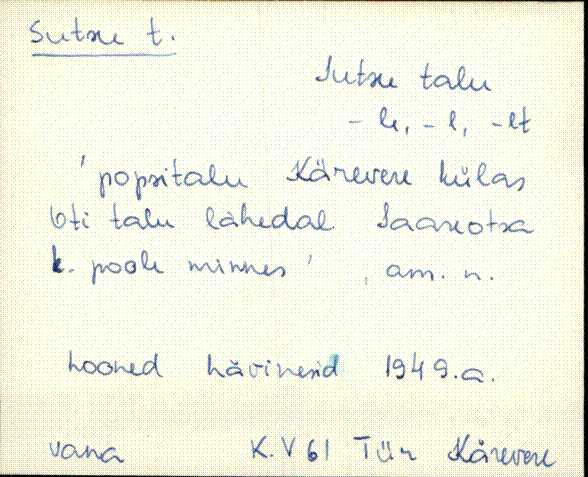 Sutsu t.
Sutsu talu
- le, - l, - lt
' popsitalu Kärevere külas
Oti talu lähedal Saareotsa
k. poole minnes ' , am. n.
hooned hävinesid 1949.a.
vana K. V 61 Tür Kärevere